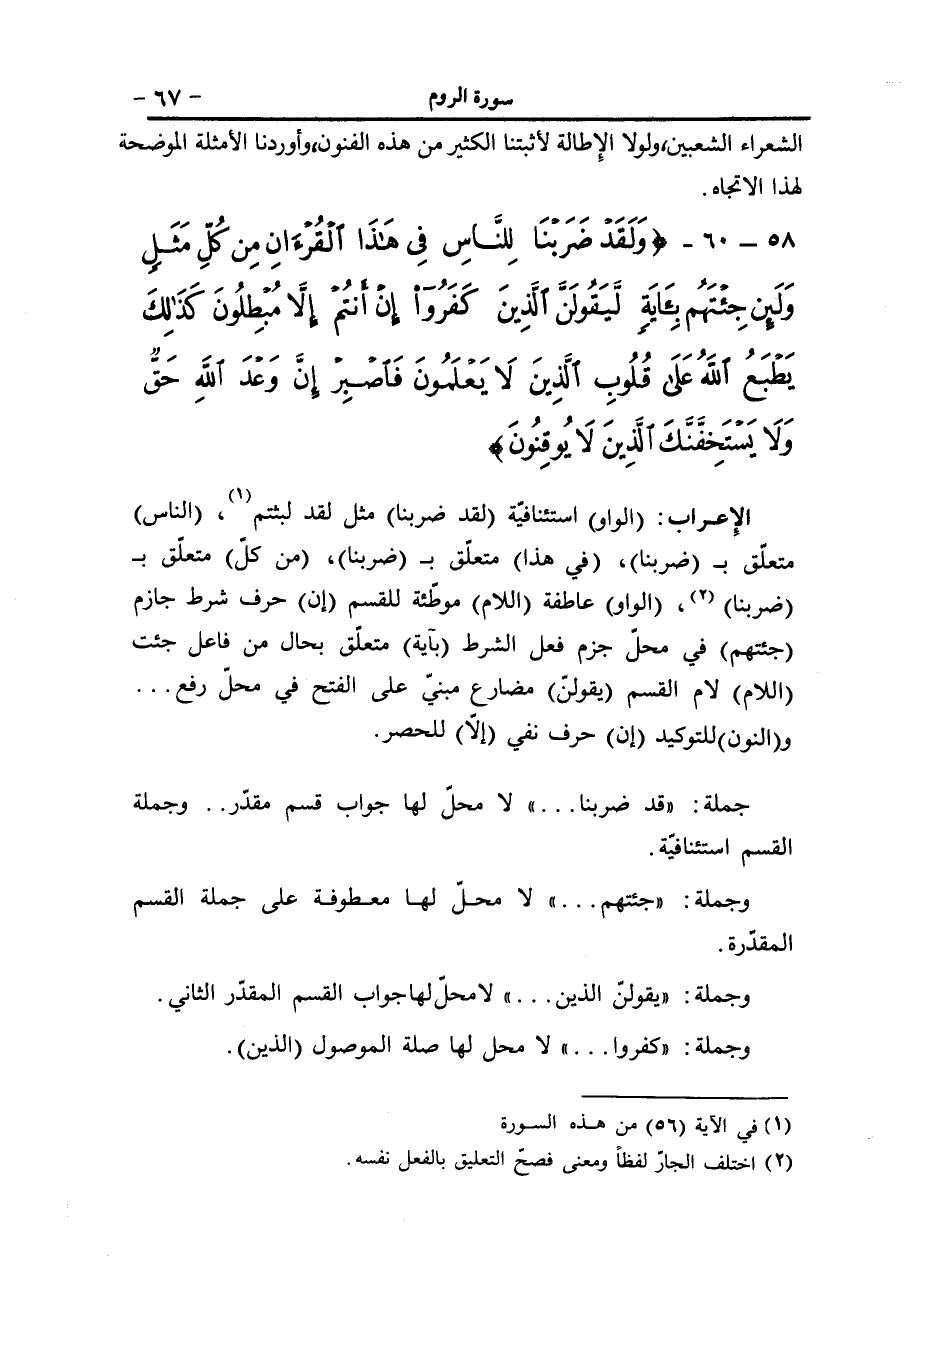 سورة الروم - ٦٧ -
الشعراء الشعبين، ولولا الإطالة لأثبتنا الكثير من هذه الفنون، وأوردنا الأمثلة الموضحة
لهذا الاتجاه.
٥٨ - ٦٠ - ﴿وَلَقَدْ ضَرَبْنَا لِلنَّاسِ فِى هَٰذَا ٱلْقُرْءَانِ مِن كُلِّ مَثَلٍ
وَلَئِن جِئْتَهُم بِـَٔايَةٍ لَّيَقُولَنَّ ٱلَّذِينَ كَفَرُوٓا۟ إِنْ أَنتُمْ إِلَّا مُبْطِلُونَ كَذَٰلِكَ
يَطْبَعُ ٱللَّهُ عَلَىٰ قُلُوبِ ٱلَّذِينَ لَا يَعْلَمُونَ فَٱصْبِرْ إِنَّ وَعْدَ ٱللَّهِ حَقٌّ
وَلَا يَسْتَخِفَّنَّكَ ٱلَّذِينَ لَا يُوقِنُونَ﴾
الإعراب: (الواو) استئنافيّة (لقد ضربنا) مثل لقد لبثتم(١)، (الناس)
متعلّق بـ (ضربنا)، (في هذا) متعلّق بـ (ضربنا)، (من كلّ) متعلّق بـ
(ضربنا)(٢)، (الواو) عاطفة (اللام) موطّئة للقسم (إن) حرف شرط جازم
(جئتهم) في محلّ جزم فعل الشرط (بآية) متعلّق بحال من فاعل جئت
(اللام) لام القسم (يقولنّ) مضارع مبنيّ على الفتح في محلّ رفع...
و(النون) للتوكيد (إن) حرف نفي (إلّا) للحصر.
جملة: «قد ضربنا...» لا محلّ لها جواب قسم مقدّر.. وجملة
القسم استئنافيّة.
وجملة: «جئتهم...» لا محلّ لها معطوفة على جملة القسم
المقدّرة.
وجملة: «يقولنّ الذين...» لا محلّ لها جواب القسم المقدّر الثاني.
وجملة: «كفروا...» لا محل لها صلة الموصول (الذين).
(١) في الآية (٥٦) من هذه السورة
(٢) اختلف الجارّ لفظاً ومعنى فصحّ التعليق بالفعل نفسه.